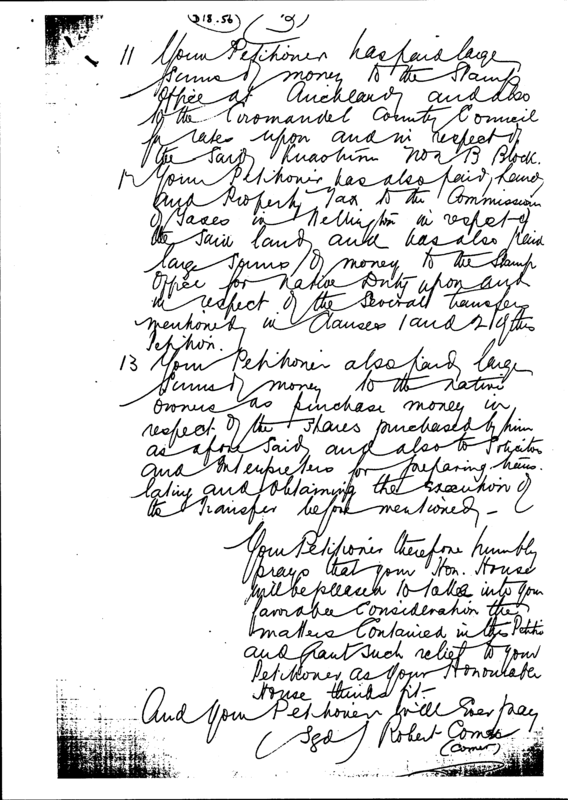 318.56 (3)
11 Your Petitioner has paid large
sums of money to the Stamp
Office at Auckland and also
to the Coromandel County Council
for rates upon and in respect of
the said No 2 B Block.
12 Your Petitioner has also paid Land
and Property Tax to the Commissioner
of Taxes in Wellington in respect of
the said land and has also paid
large sums of money to the Stamp
Office for Native Duty upon and
in respect of the several transfers
mentioned in Clauses 1 and 2 of this
Petition.
13 Your Petitioner also paid large
sums of money to the native
owners as purchase money in
respect of the shares purchased by him
as afore said and also to Solicitors
and Interpreters for preparing trans-
lating and obtaining the execution of
the Transfer before mentioned –
Your Petitioner therefore humbly
prays that your Hon. House
will be pleased to take into your
favorable Consideration the
matters Contained in this Petition
and grant such relief to your
Petitioner as your Honourable
House thinks fit –
And your Petitioner will Ever pray
(Sgd) Robert Comes
(Comer)